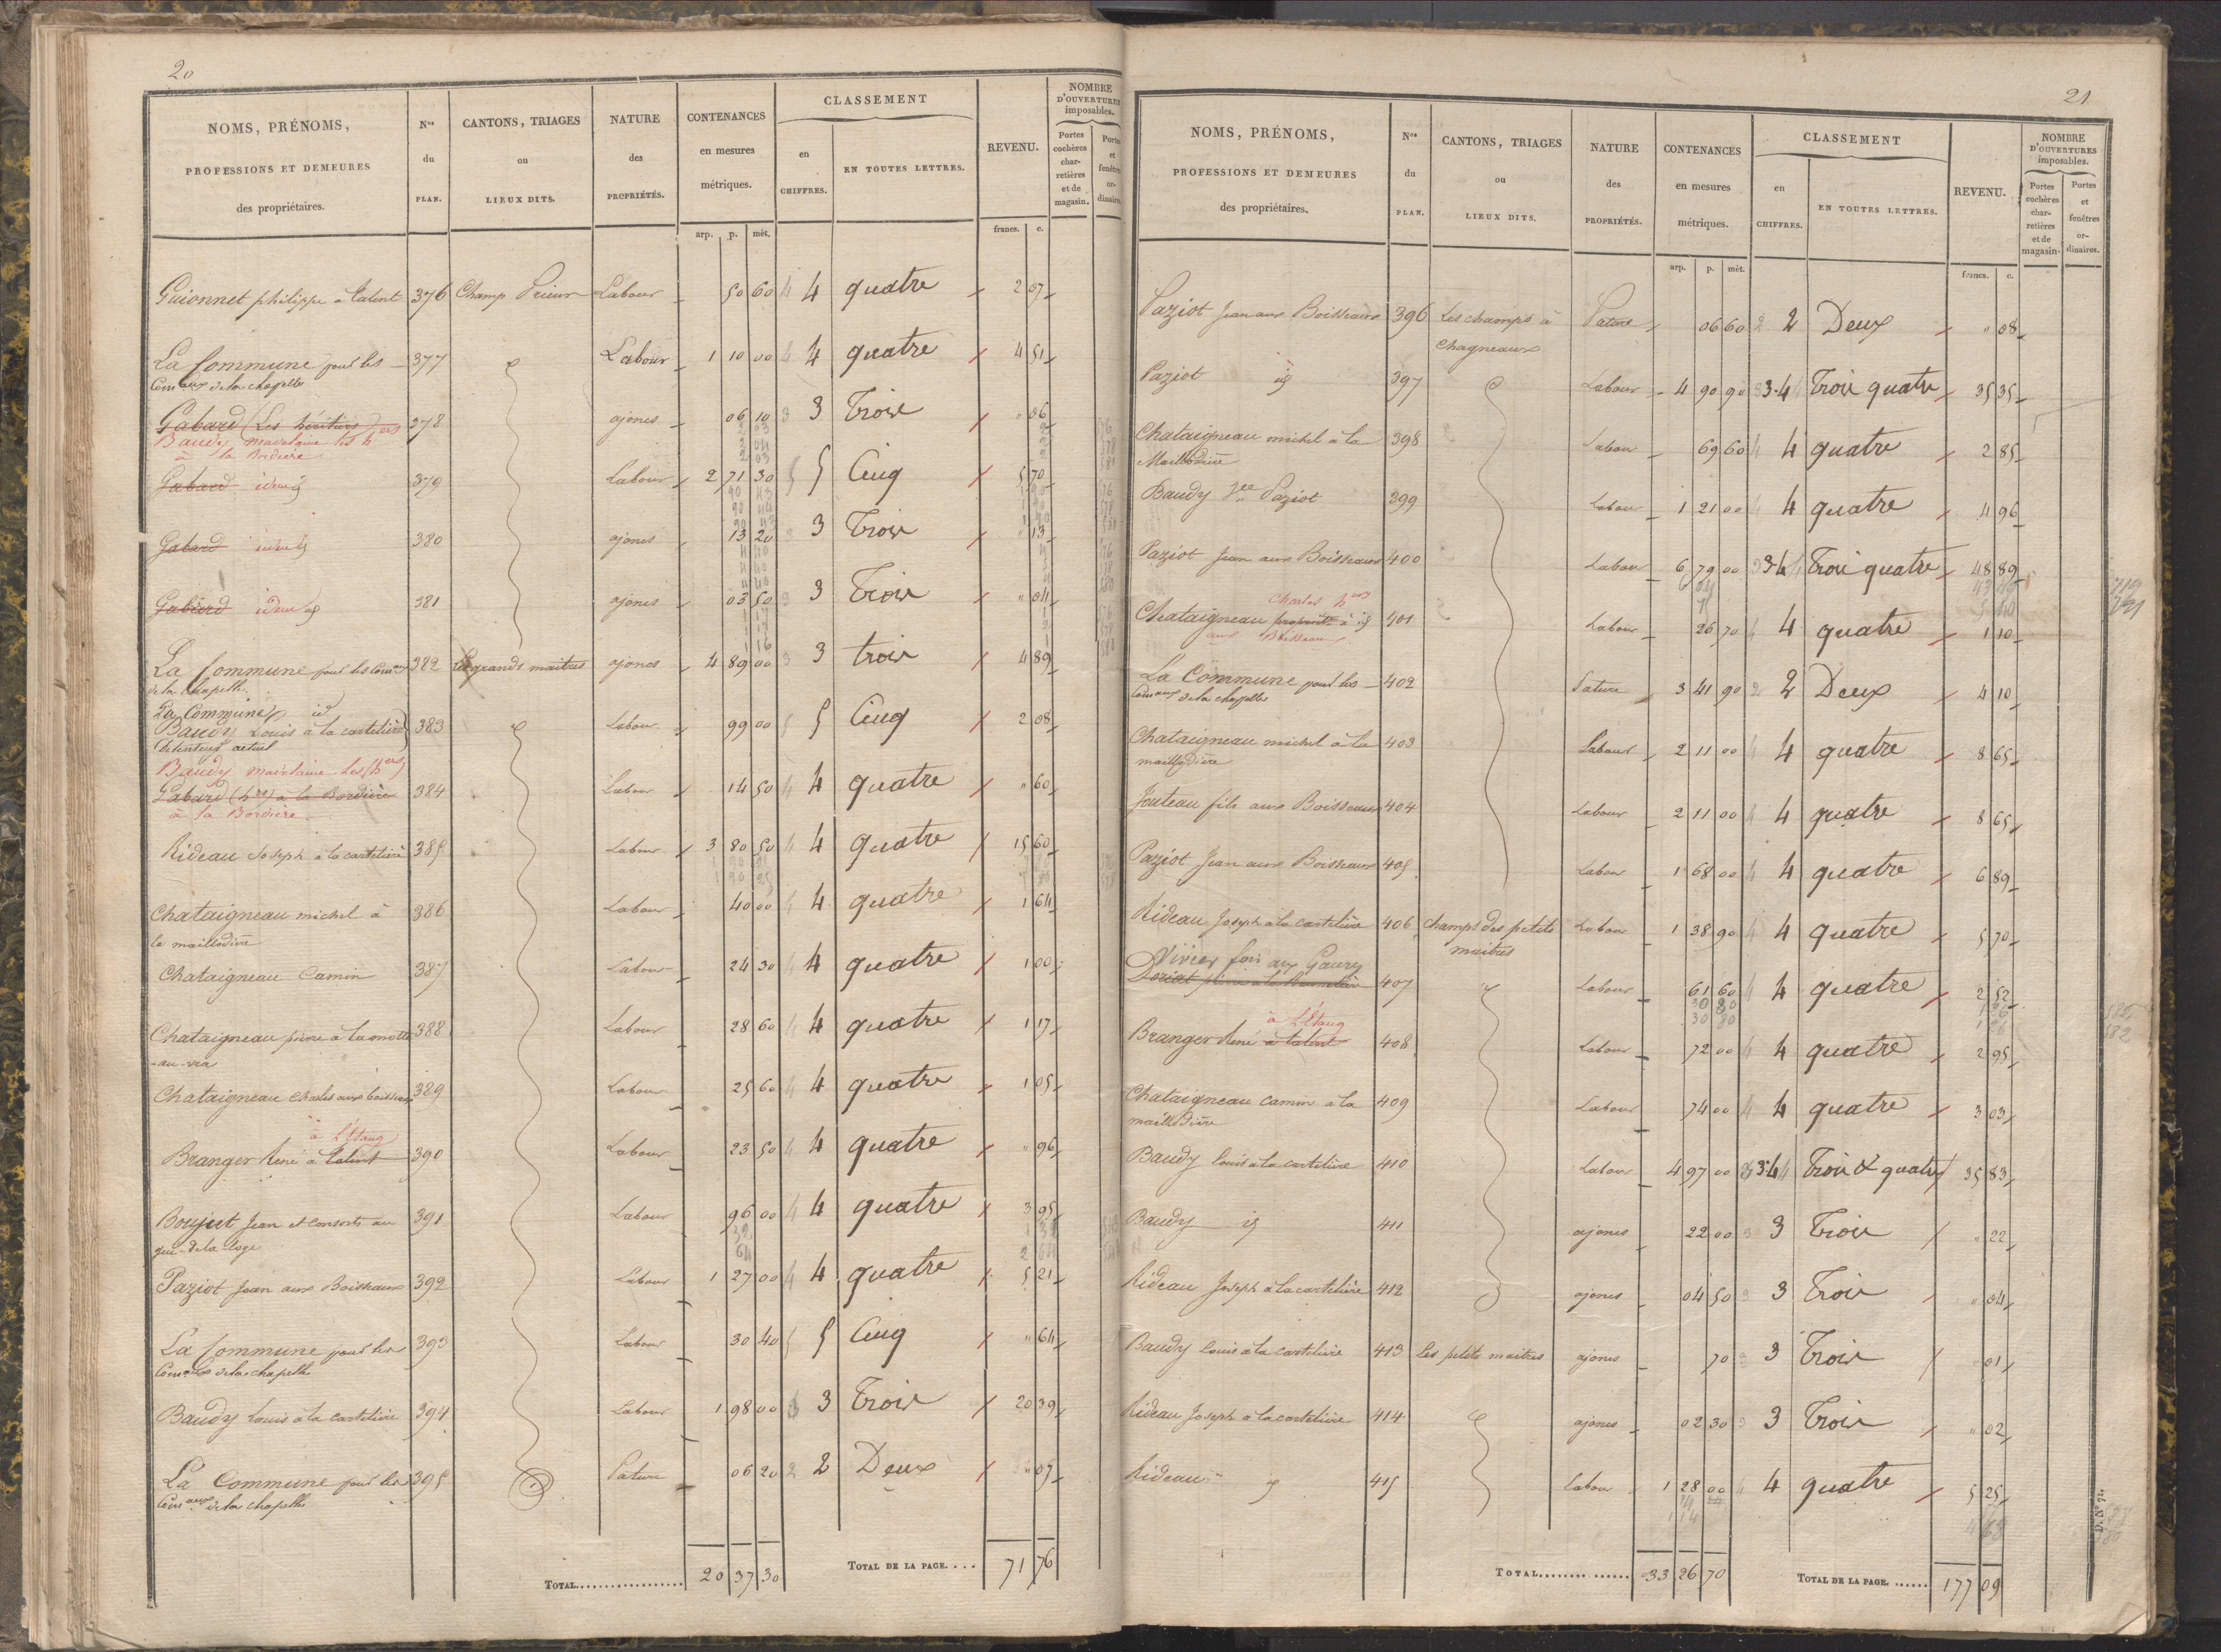 20
NOMS, PRÉNOMS, PROFESSIONS ET DEMEURES des propriétaires. | Nos du PLAN. | CANTONS, TRIAGES ou LIEUX DITS. | NATURE des PROPRIÉTÉS. | CONTENANCES en mesures métriques. arp. p. mèt. | CLASSEMENT en CHIFFRES. EN TOUTES LETTRES. | REVENU. francs. c. | NOMBRE D'OUVERTURES imposables. Portes cochères charretières et de magasin. Portes et fenêtres ordinaires.
Guionnet philippe a Talent 376 Champ Prieur Labour 50 60 4 4 quatre 2 07
La Commune pour les 377 Labour 1 10 00 4 4 quatre 4 51
Comaux de la chapelle
Gabard (Les héritiers) 378 ajoncs 06 10 3 3 Trois " 06
Baudy madelaine les hers
à la Bordiere
Gabard idem 379 Labour 2 71 30 5 5 Cinq 5 70
Gabard idem 380 ajoncs 13 20 3 3 Trois " 13
Gabard idem 381 ajoncs 03 50 3 3 Trois " 04
La Commune pour les Comaux 382 Les grands maitres ajoncs 4 89 00 3 3 trois 4 89
de la chapelle
La Commune id
Baudy Louis à la carteliere 383 Labour 99 00 5 5 Cinq 2 08
detenteur actuel
Baudy madelaine les (hers)
Gabard (hers) a la Bordiere 384 Labour 14 50 4 4 quatre " 60
à la Bordiere
Rideau Joseph a la carteliere 385 Labour 3 80 50 4 4 quatre 15 60
Chataigneau michel à 386 Labour 40 00 4 4 quatre 1 64
la maillodière
Chataigneau Camin 387 Labour 24 30 4 4 quatre 1 00
Chataigneau pierre à la motte 388 Labour 28 60 4 4 quatre 1 17
Chataigneau Charles aux boisseaux 389 Labour 25 60 4 4 quatre 1 05
à l'Etang
Branger René a Talent 390 Labour 23 50 4 4 quatre " 96
Boujut Jean et consorts au 391 Labour 96 00 4 4 quatre 3 95
gué-de-la-loge
Paziot Jean aux Boisseaux 392 Labour 1 27 00 4 4 quatre 5 21
La Commune pour les 393 Labour 30 40 5 5 Cinq " 64
Comaux de la chapelle
Baudy Louis à la carteliere 394 Labour 1 98 00 3 3 Trois 20 39
La Commune pour les 395 Pature 06 20 2 2 Deux " 07
Comaux de la chapelle
TOTAL 20 37 30 TOTAL DE LA PAGE 71 76
21
NOMS, PRÉNOMS, PROFESSIONS ET DEMEURES des propriétaires. | Nos du PLAN. | CANTONS, TRIAGES ou LIEUX DITS. | NATURE des PROPRIÉTÉS. | CONTENANCES en mesures métriques. arp. p. mèt. | CLASSEMENT en CHIFFRES. EN TOUTES LETTRES. | REVENU. francs. c. | NOMBRE D'OUVERTURES imposables. Portes cochères charretières et de magasin. Portes et fenêtres ordinaires.
Paziot Jean aux Boisseaux 396 Les champs à Pature 06 60 2 2 Deux " 08
Chagneaux
Paziot id 397 Labour 4 90 90 3-4 Trois quatre 35 35
Chataigneau michel à la 398 Labour 69 60 4 4 quatre 2 85
Maillodière
Baudy Vee Paziot 399 Labour 1 21 00 4 4 quatre 4 96
Paziot Jean aux Boisseaux 400 Labour 6 79 00 3-4 Trois quatre 48 89
Charles hers
Chataigneau id 401 Labour 26 70 4 4 quatre 1 10
aux Boisseaux
La Commune pour les 402 Pature 3 41 90 2 2 Deux 4 10
Comaux de la chapelle
Chataigneau michel à la 403 Labour 2 11 00 4 4 quatre 8 65
maillodière
Jouteau fils aux Boisseaux 404 Labour 2 11 00 4 4 quatre 8 65
Paziot Jean aux Boisseaux 405 Labour 1 68 00 4 4 quatre 6 89
Rideau Joseph à la carteliere 406 Champs des petits Labour 1 38 90 4 4 quatre 5 70
maitres
Vivier fois aux Gaurey
407 Labour 61 60 4 4 quatre 2 52
à l'Etang
Branger René a talent 408 Labour 72 00 4 4 quatre 2 95
Chataigneau Camin a la 409 Labour 74 00 4 4 quatre 3 03
maillodière
Baudy Louis à la carteliere 410 Labour 4 97 00 3-4 Trois & quatre 35 83
Baudy id 411 ajoncs 22 00 3 3 Trois " 22
Rideau Joseph à la carteliere 412 ajoncs 04 50 3 3 Trois " 04
Baudy Louis à la carteliere 413 Les petits maitres ajoncs 70 3 3 Trois " 01
Rideau Joseph à la carteliere 414 ajoncs 02 30 3 3 Trois " 02
Rideau id 415 Labour 1 28 00 4 4 quatre 5 25
TOTAL 33 26 70 TOTAL DE LA PAGE 177 09
D. No 72.